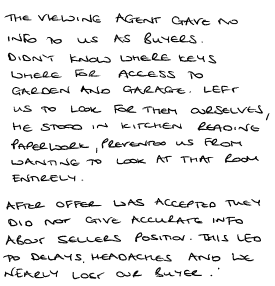 THE VIEWING AGENT GAVE NO
INFO TO US AS BUYERS.
DIDNT KNOW WHERE KEYS
WHERE FOR ACCESS TO
GARDEN AND GARAGE. LEFT
US TO LOOK FOR THEM OURSELVES,
HE STOOD IN KITCHEN READING
PAPERWORK, PREVENTED US FROM
WANTING TO LOOK AT THAT ROOM
ENTIRELY.
AFTER OFFER WAS ACCEPTED THEY
DID NOT GIVE ACCURATE INFO
ABOUT SELLERS POSITION. THIS LED
TO DELAYS, HEADACHES AND WE
NEARLY LOST OUR BUYER.